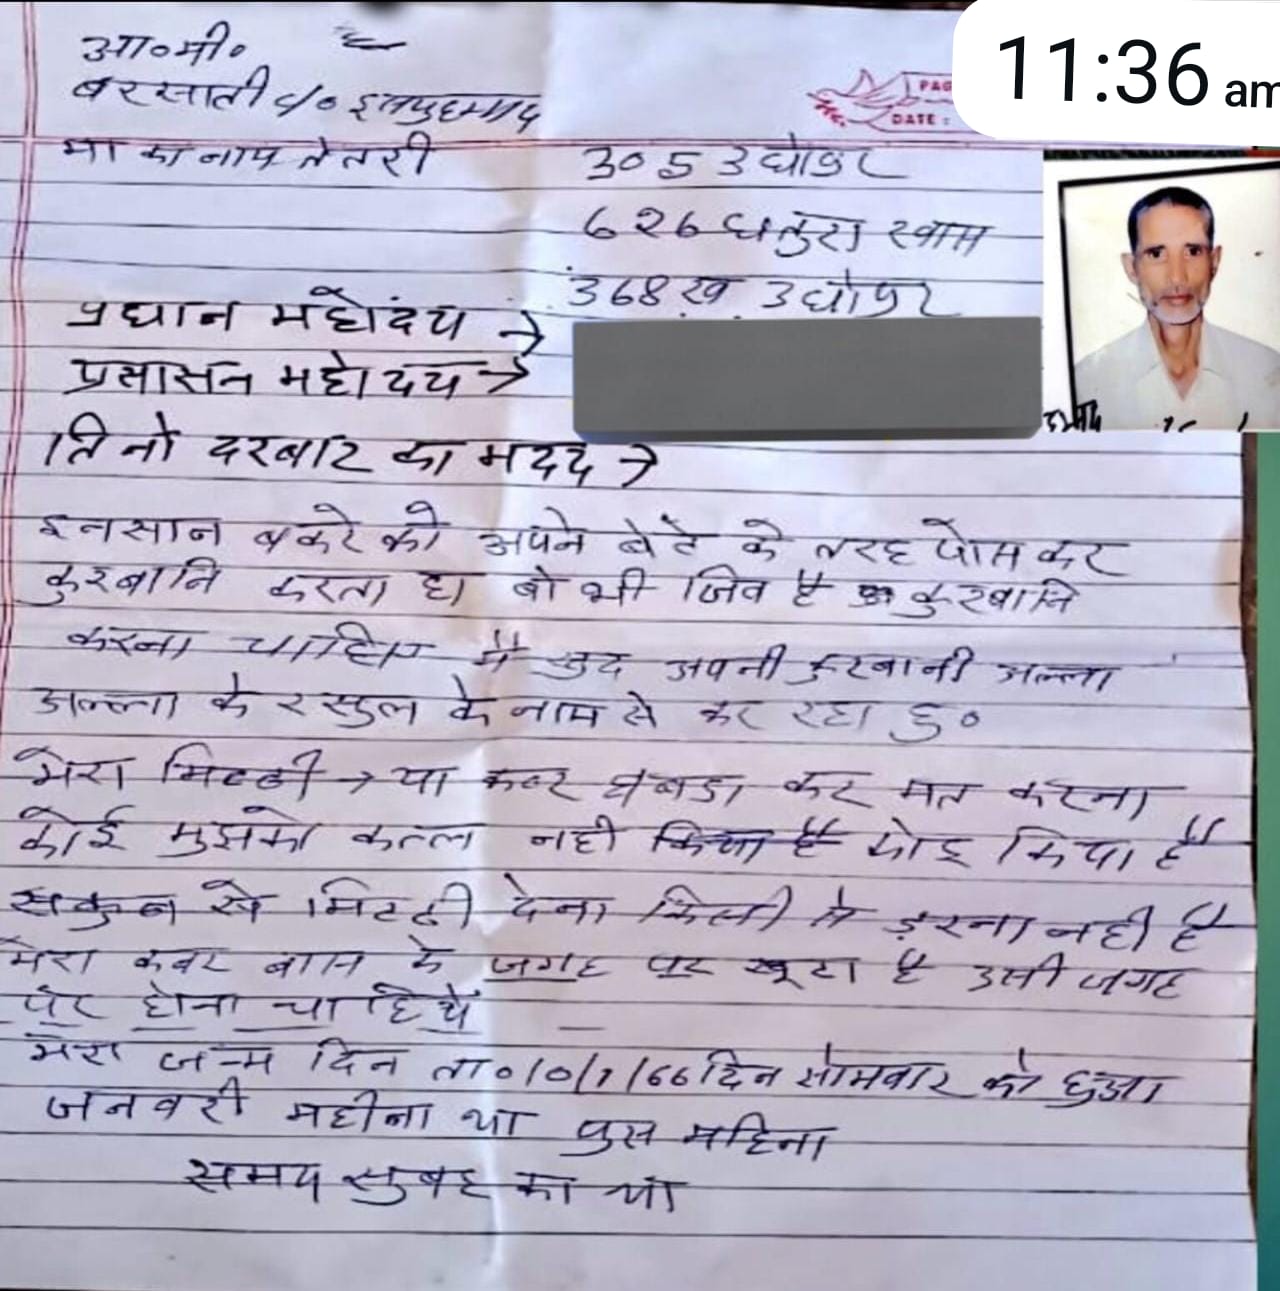 11:36 am
आ०मी०
PAG
DATE :
बरसाती
मा का नाम तेतरी
305 उघोपुर
626 धतुरा खास
368 ख उघोपुर
प्रधान महोदय →
प्रसासन महोदय →
तिनो दरबार का मदद →
इनसान बकरे को अपने बेटे के तरह पोस कर
कुरबानि करता हा बो भी जिव है कुरबानि
करना चाहिए मै खुद अपनी कुरबानी अल्ला
अल्ला के रसुल के नाम से कर रहा हु०
मेरा मिट्टी → या कबर घबडा कर मत करना
कोई मुझको कत्ल नही किया है कोइ किया है
सकुन से मिट्टी देना किसी से ड़रना नही है
मेरा कबर बास के जगह पर खूटा है उसी जगह
पर होना चाहिये
मेरा जन्म दिन ता०10/1/66 दिन सोमवार को हुआ
जनवरी महीना था पुस महिना
समय सुबह का था